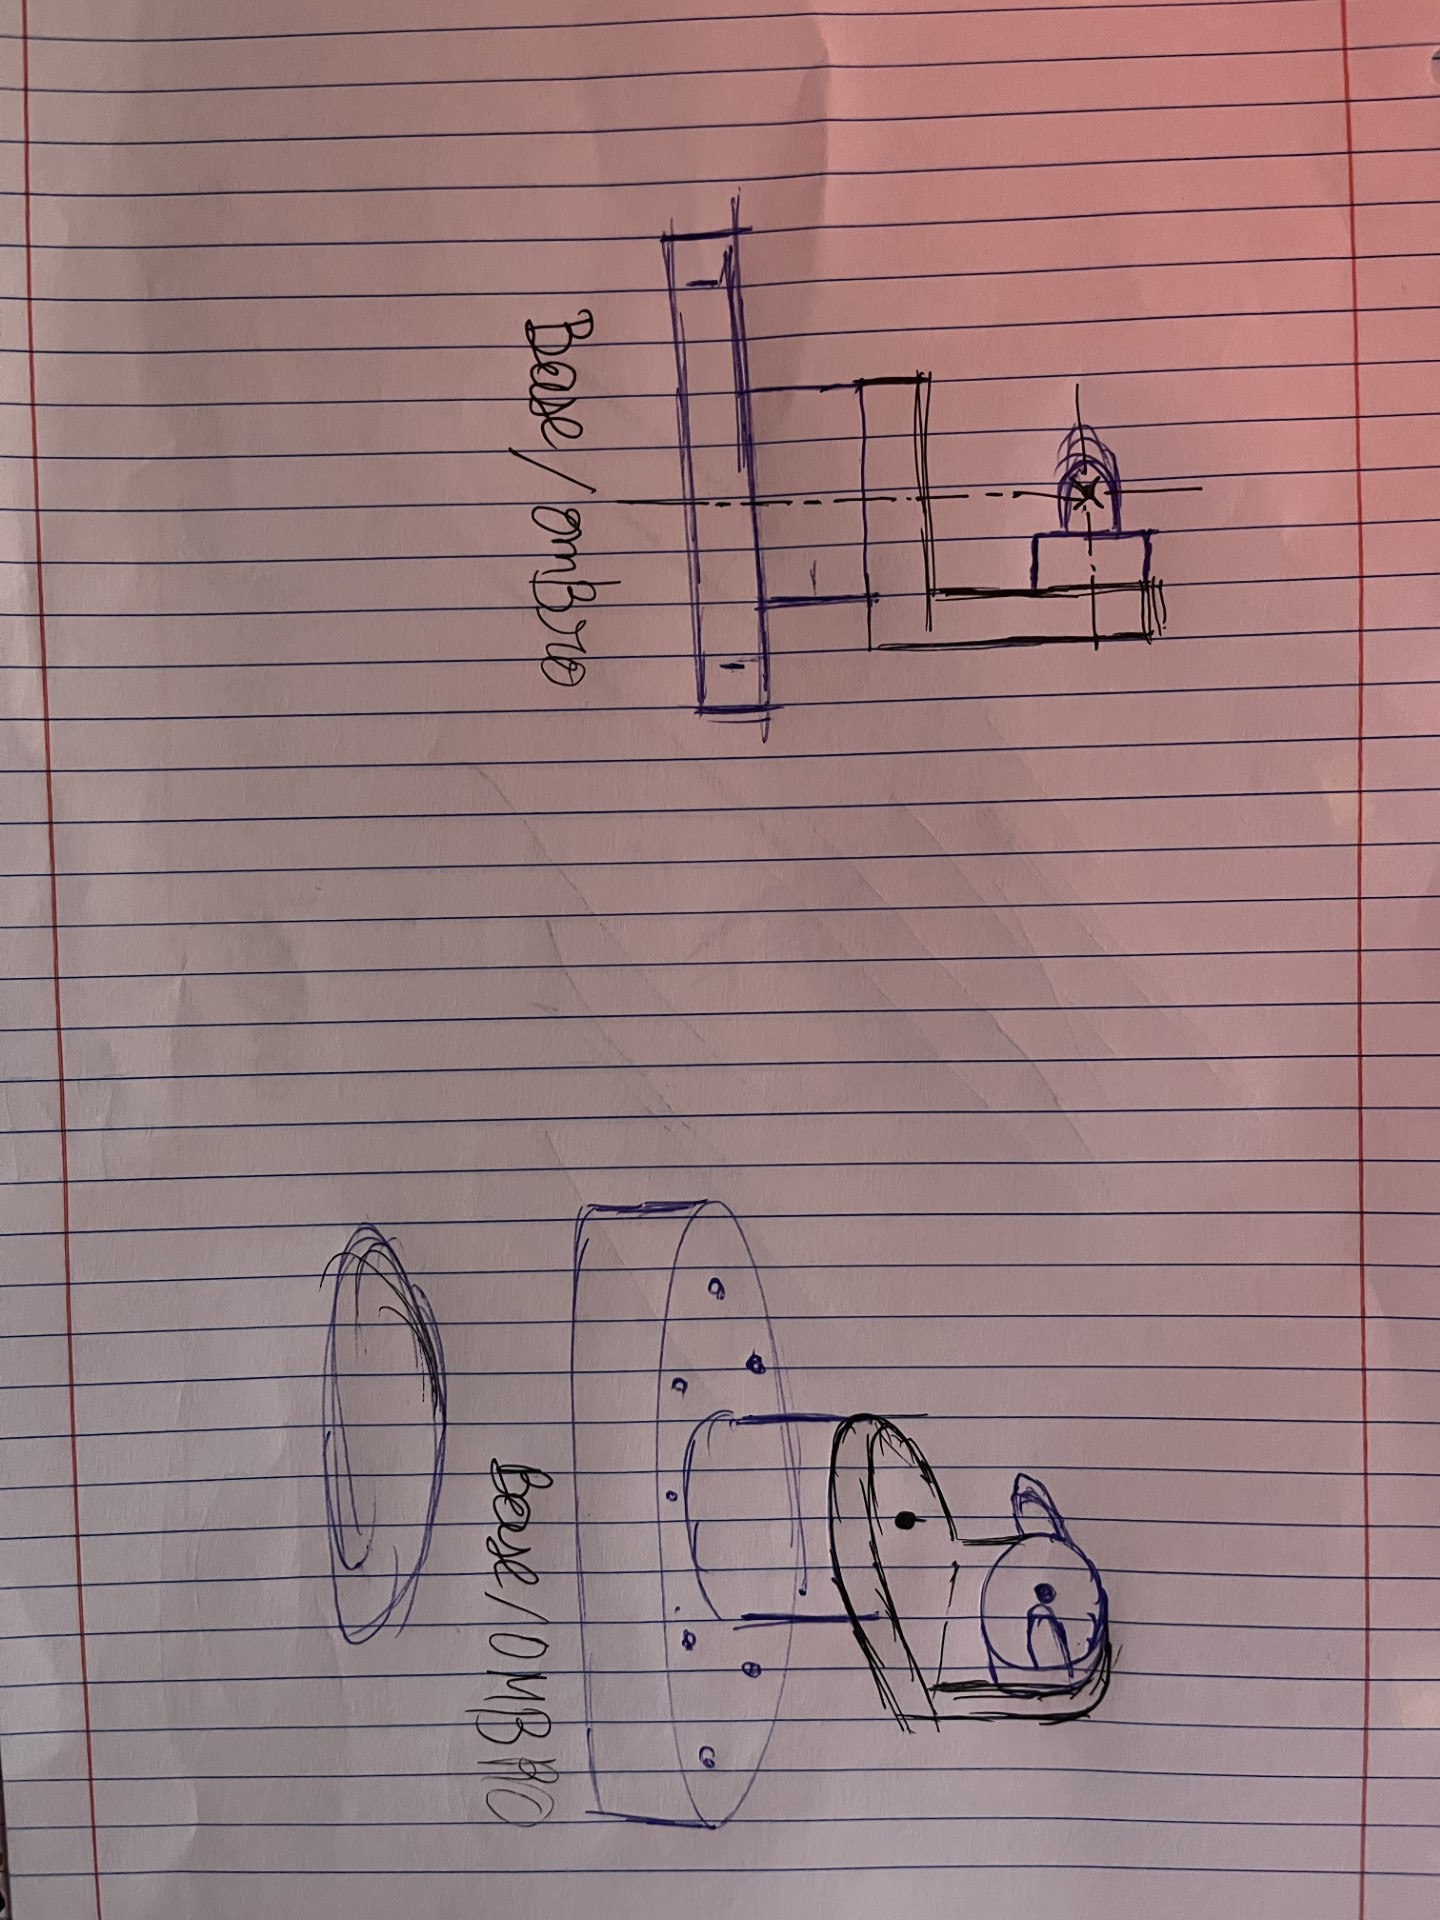 Base / ombro
Base / OMBRO